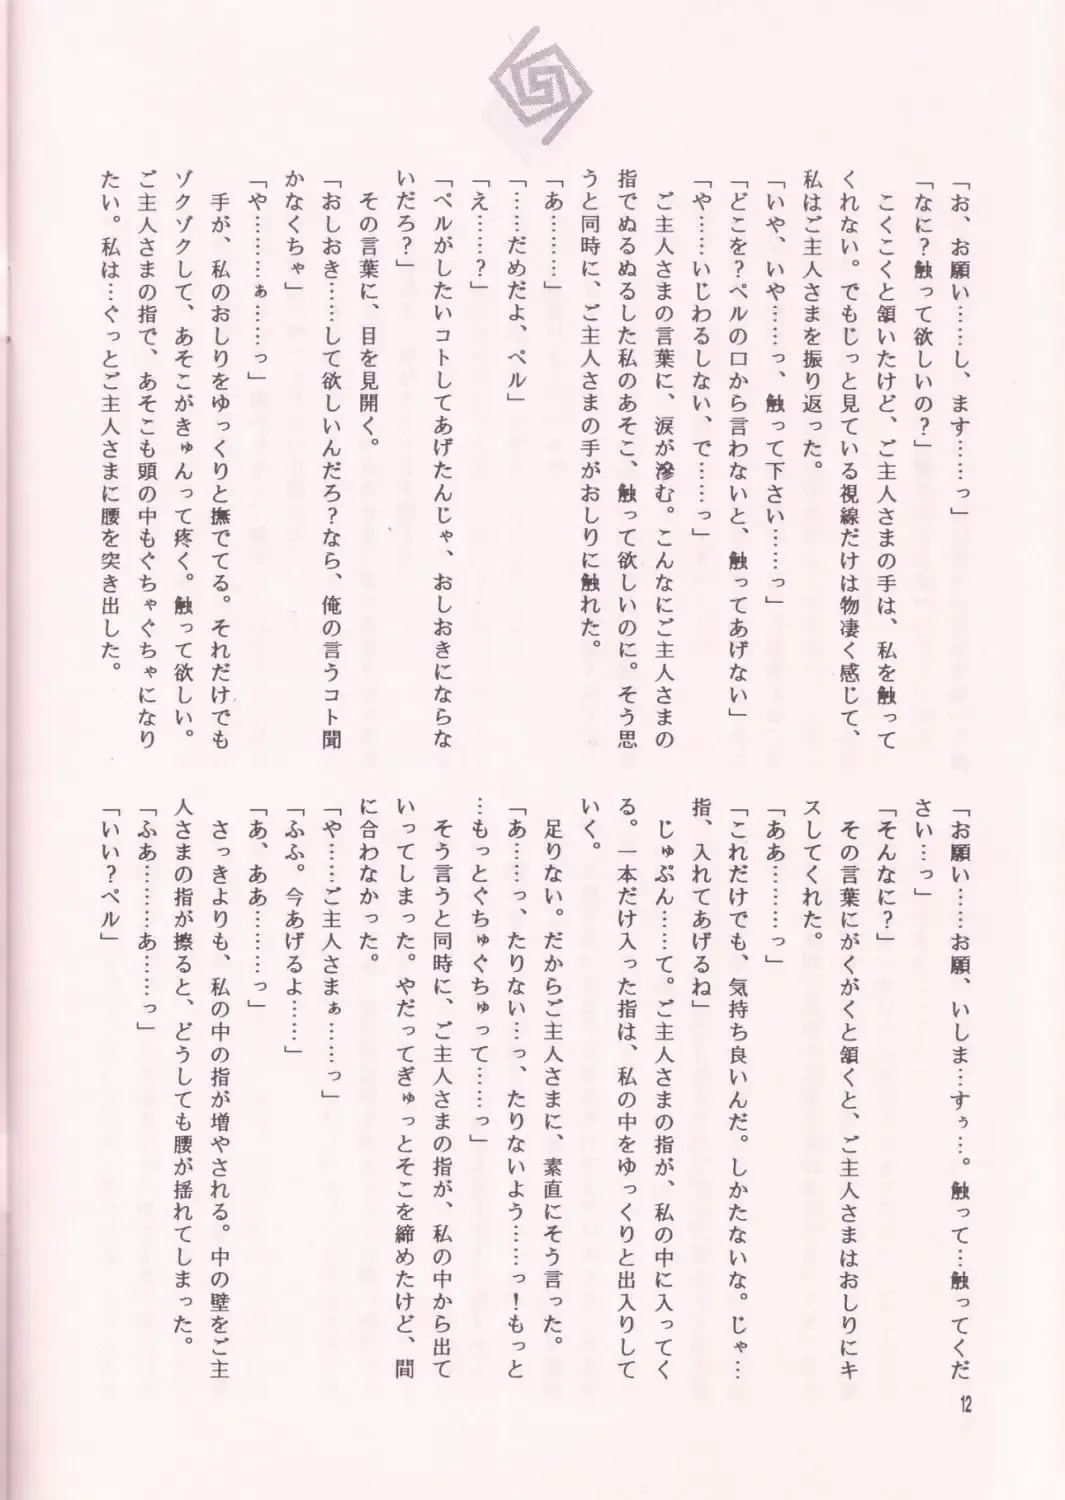 「お、お願い……し、ます……っ」
「なに？触って欲しいの？」
こくこくと頷いたけど、ご主人さまの手は、私を触って
くれない。でもじっと見ている視線だけは物凄く感じて、
私はご主人さまを振り返った。
「いや、いや……っ、触って下さい……っ」
「どこを？ペルの口から言わないと、触ってあげない」
「や……いじわるしない、で……っ」
ご主人さまの言葉に、涙が滲む。こんなにご主人さまの
指でぬるぬるした私のあそこ、触って欲しいのに。そう思
うと同時に、ご主人さまの手がおしりに触れた。
「あ………」
「……だめだよ、ペル」
「え……？」
「ペルがしたいコトしてあげたんじゃ、おしおきにならな
いだろ？」
その言葉に、目を見開く。
「おしおき……して欲しいんだろ？なら、俺の言うコト聞
かなくちゃ」
「や………ぁ……っ」
手が、私のおしりをゆっくりと撫でてる。それだけでも
ゾクゾクして、あそこがきゅんって疼く。触って欲しい。
ご主人さまの指で、あそこも頭の中もぐちゃぐちゃになり
たい。私は…ぐっとご主人さまに腰を突き出した。
「お願い……お願、いしま…すぅ…。触って…触ってくだ
さい…っ」
「そんなに？」
その言葉にがくがくと頷くと、ご主人さまはおしりにキ
スしてくれた。
「ああ………っ」
「これだけでも、気持ち良いんだ。しかたないな。じゃ…
指、入れてあげるね」
じゅぷん……て。ご主人さまの指が、私の中に入ってく
る。一本だけ入った指は、私の中をゆっくりと出入りして
いく。
足りない。だからご主人さまに、素直にそう言った。
「あ……っ、たりない…っ、たりないよう……っ！もっと
…もっとぐちゅぐちゅって……っ」
そう言うと同時に、ご主人さまの指が、私の中から出て
いってしまった。やだってぎゅっとそこを締めたけど、間
に合わなかった。
「や……ご主人さまぁ……っ」
「ふふ。今あげるよ……」
「あ、ああ………っ」
さっきよりも、私の中の指が増やされる。中の壁をご主
人さまの指が擦ると、どうしても腰が揺れてしまった。
「ふあ………あ……っ」
「いい？ペル」
12